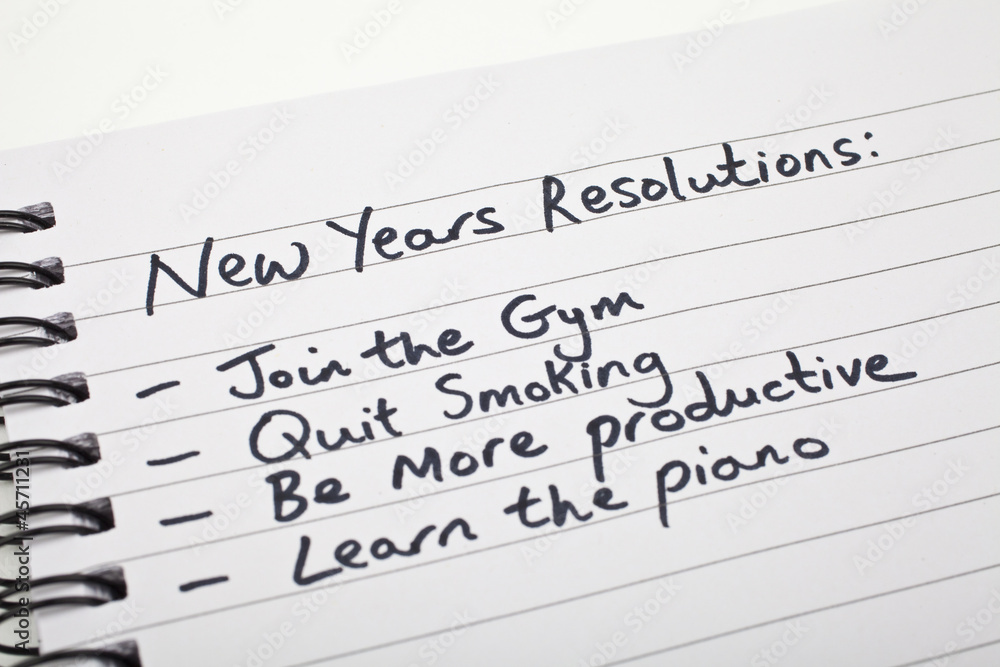 New Years Resolutions:
- Join the Gym
- Quit Smoking
- Be More productive
- Learn the piano
Adobe Stock | #45711231